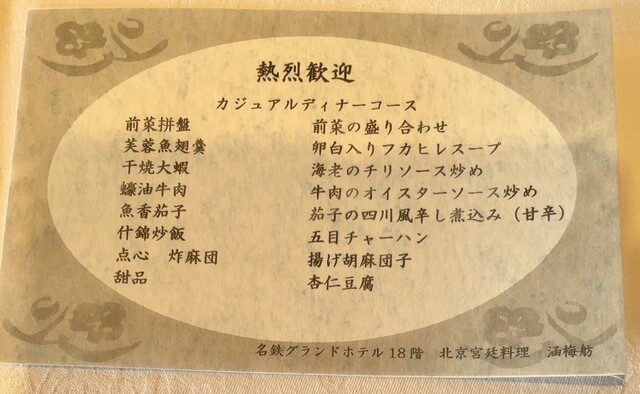 熱烈歓迎
カジュアルディナーコース
前菜拼盤 前菜の盛り合わせ
芙蓉魚翅羹 卵白入りフカヒレスープ
干焼大蝦 海老のチリソース炒め
蠔油牛肉 牛肉のオイスターソース炒め
魚香茄子 茄子の四川風辛し煮込み（甘辛）
什錦炒飯 五目チャーハン
点心 炸麻団 揚げ胡麻団子
甜品 杏仁豆腐
名鉄グランドホテル18階 北京宮廷料理 涵梅舫